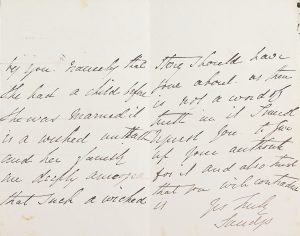 by you. Namely that
she had a child before
she was married it
is a wicked untruth
and her family
are deeply annoyed
that such a wicked
story should have
gone about as there
is not a word of
truth in it I must
request you to give
up your authority
for it and also trust
that you will contradict
it
Yrs truly
Sandys